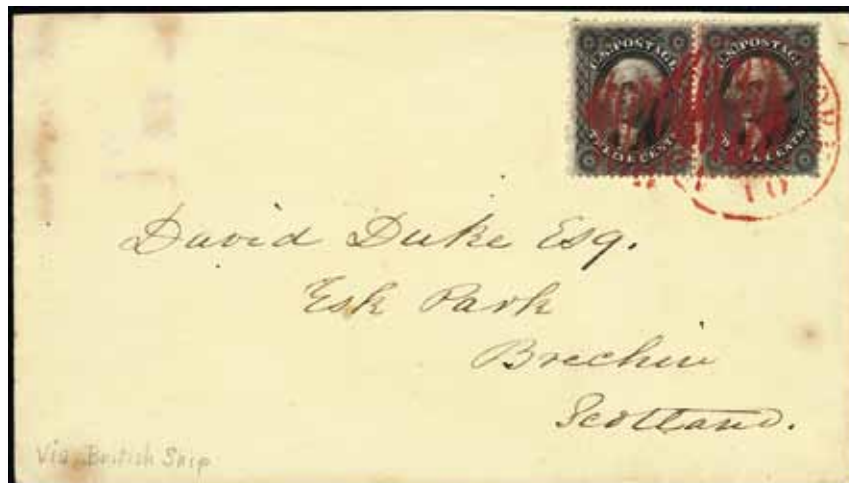 U.S. POSTAGE U.S. POSTAGE
TWELVE CENTS
10
David Duke Esq.
Esk Park
Brechin
Scotland.
Via British Ship